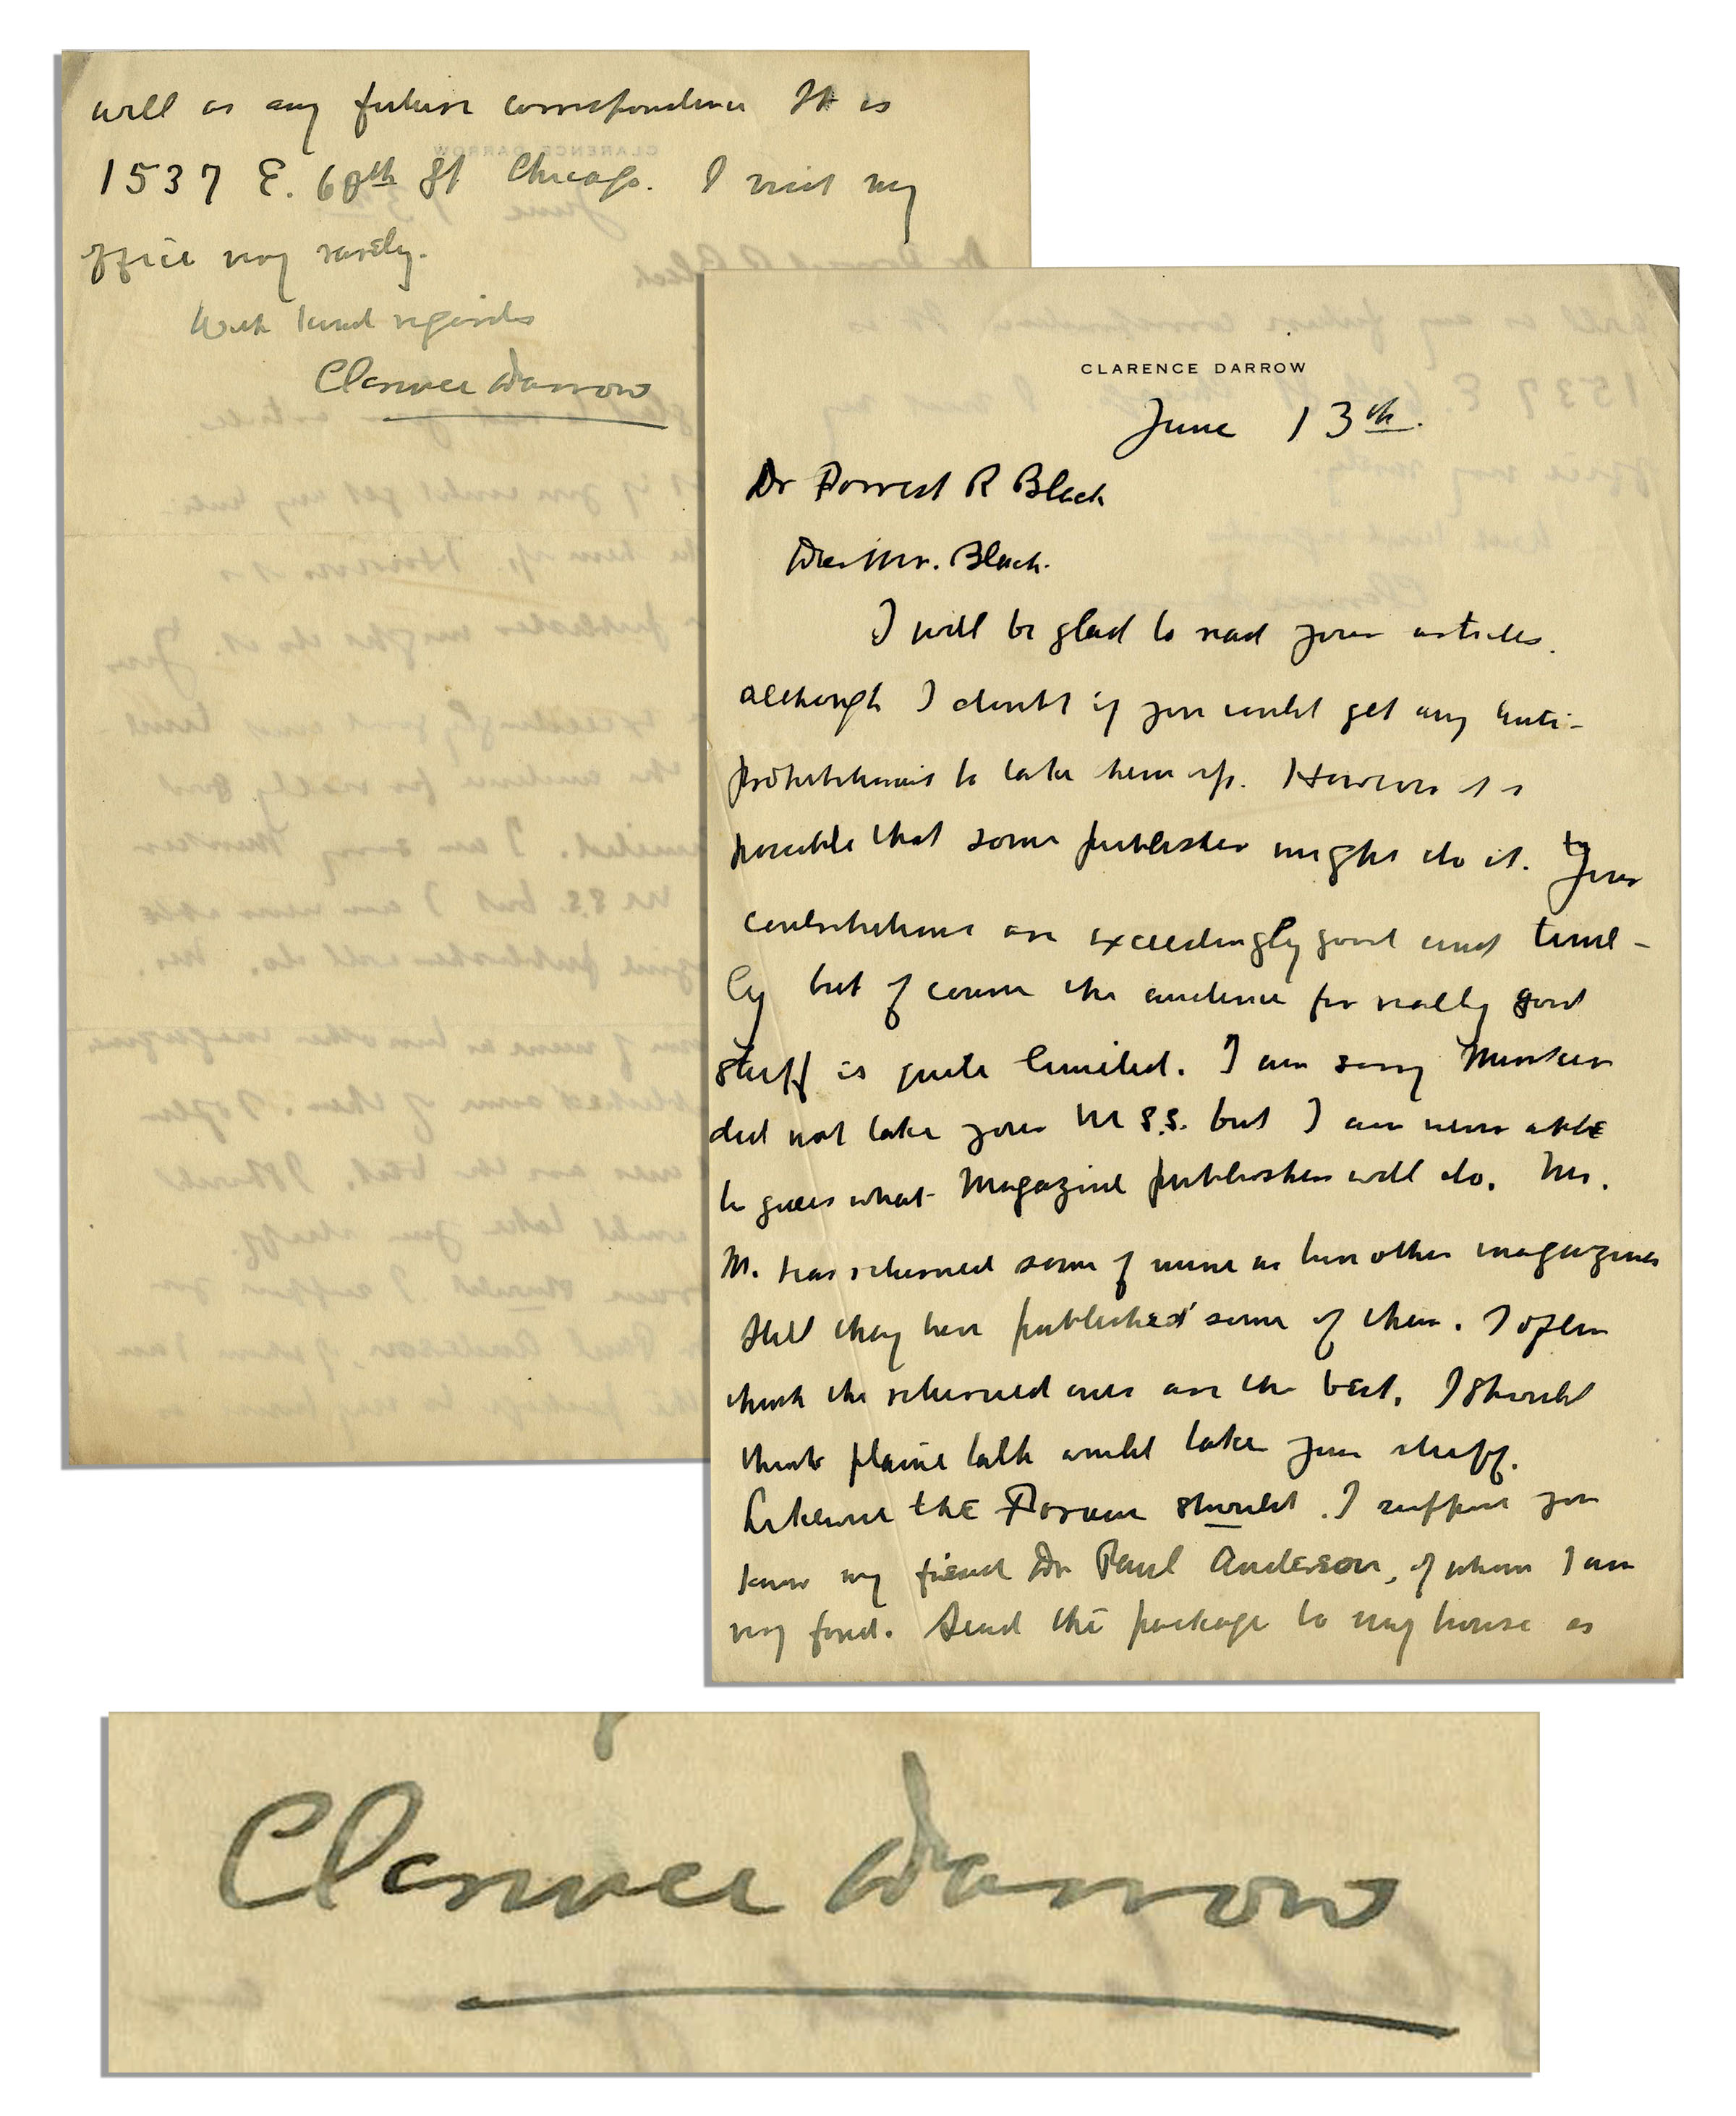 CLARENCE DARROW
June 13th.
Dr Forrest R Black
Dear Mr. Black.
I will be glad to read your articles.
although I doubt if you could get any anti-
prohibitionist to take them up. However it is
possible that some publisher might do it. Your
contributions are exceedingly good and time-
ly but of course the audience for really good
stuff is quite limited. I am sorry Mencken
did not take your M S.S. but I am never able
to guess what Magazine publishers will do. Mr.
M. has returned some of mine as have other magazines
Still they have published some of them. I often
think the returned ones are the best. I should
think plain talk would take your stuff.
Likewise the Forum should. I suppose you
know my friend Dr Paul Anderson, of whom I am
very fond. Send the package to my house as
well as any future correspondence It is
1537 E. 60th St Chicago. I visit my
office very rarely.
With kind regards
Clarence Darrow
Clarence Darrow